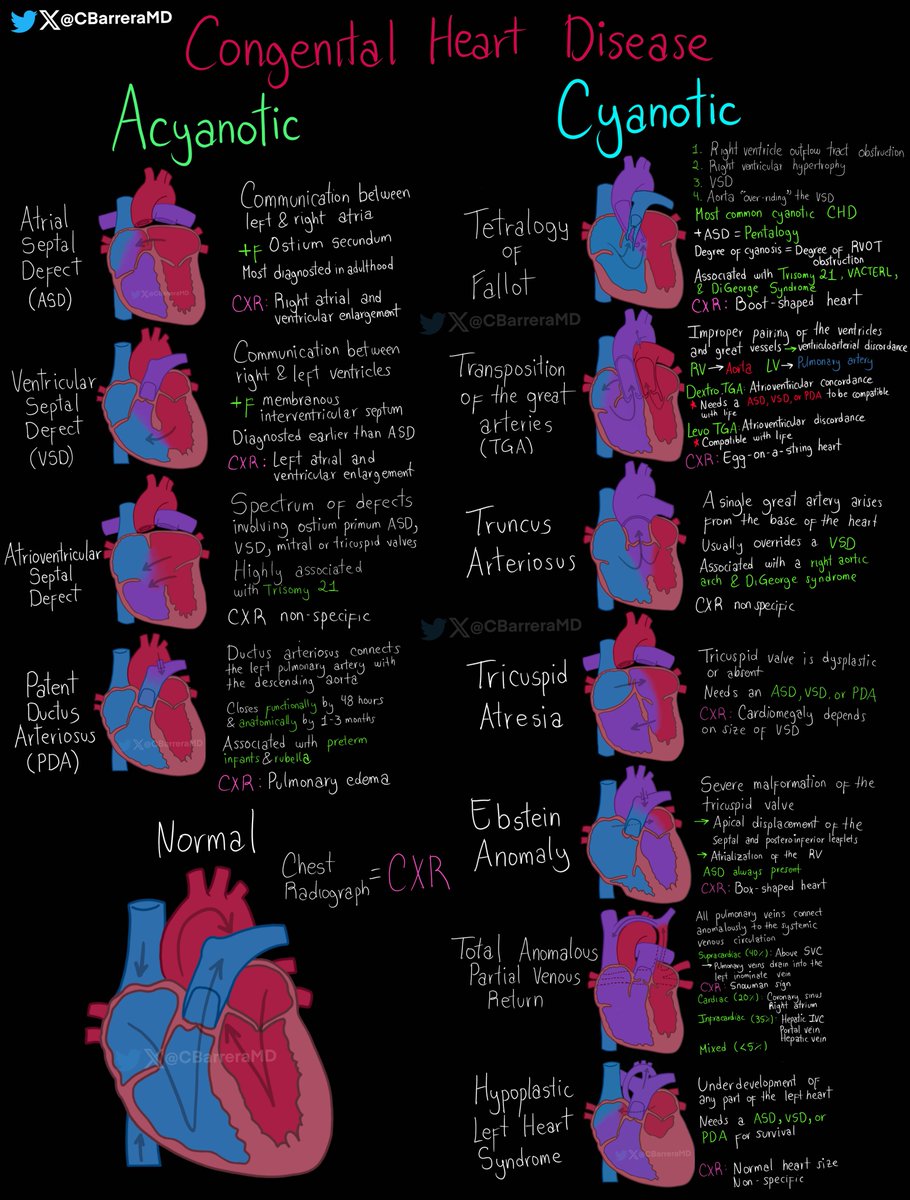 @CBarreraMD
Congenital Heart Disease
Acyanotic
Atrial
Septal
Defect
(ASD)
Communication between
left & right atria
+F Ostium secundum
Most diagnosed in adulthood
CXR: Right atrial and
ventricular enlargement
@CBarreraMD
Ventricular
Septal
Defect
(VSD)
Communication between
right & left ventricles
+F membranous
interventricular septum
Diagnosed earlier than ASD
CXR: Left atrial and
ventricular enlargement
Atrioventricular
Septal
Defect
Spectrum of defects
involving ostium primum ASD,
VSD, mitral or tricuspid valves
Highly associated
with Trisomy 21
CXR non-specific
Patent
Ductus
Arteriosus
(PDA)
Ductus arteriosus connects
the left pulmonary artery with
the descending aorta
Closes functionally by 48 hours
& anatomically by 1-3 months
Associated with preterm
infants & rubella
CXR: Pulmonary edema
@CBarreraMD
Normal
Chest
Radiograph = CXR
@CBarreraMD
Cyanotic
Tetralogy
of
Fallot
1. Right ventricle outflow tract obstruction
2. Right ventricular hypertrophy
3. VSD
4. Aorta "over-riding" the VSD
Most common cyanotic CHD
+ASD = Pentalogy
Degree of cyanosis = Degree of RVOT
obstruction
Associated with Trisomy 21, VACTERL,
& DiGeorge Syndrome
CXR: Boot-shaped heart
@CBarreraMD
Transposition
of the great
arteries
(TGA)
Improper pairing of the ventricles
and great vessels → ventriculoarterial discordance
RV → Aorta LV → Pulmonary artery
Dextro TGA: Atrioventricular concordance
* Needs a ASD, VSD, or PDA to be compatible
with life
Levo TGA: Atrioventricular discordance
* Compatible with life
CXR: Egg-on-a-string heart
Truncus
Arteriosus
A single great artery arises
from the base of the heart
Usually overrides a VSD
Associated with a right aortic
arch & DiGeorge syndrome
CXR nonspecific
@CBarreraMD
Tricuspid
Atresia
Tricuspid valve is dysplastic
or absent
Needs an ASD, VSD, or PDA
CXR: Cardiomegaly depends
on size of VSD
Ebstein
Anomaly
Severe malformation of the
tricuspid valve
→ Apical displacement of the
septal and posteroinferior leaflets
→ Atrialization of the RV
ASD always present
CXR: Box-shaped heart
Total Anomalous
Partial Venous
Return
All pulmonary veins connect
anomalously to the systemic
venous circulation
Supracardiac (40%): Above SVC
→ Pulmonary veins drain into the
left inominate vein
CXR: Snowman sign
Cardiac (20%): Coronary sinus
Right atrium
Infracardiac (35%): Hepatic IVC
Portal vein
Hepatic vein
Mixed (<5%)
Hypoplastic
Left Heart
Syndrome
Underdevelopment of
any part of the left heart
Needs a ASD, VSD, or
PDA for survival
CXR: Normal heart size
Non-specific
@CBarreraMD